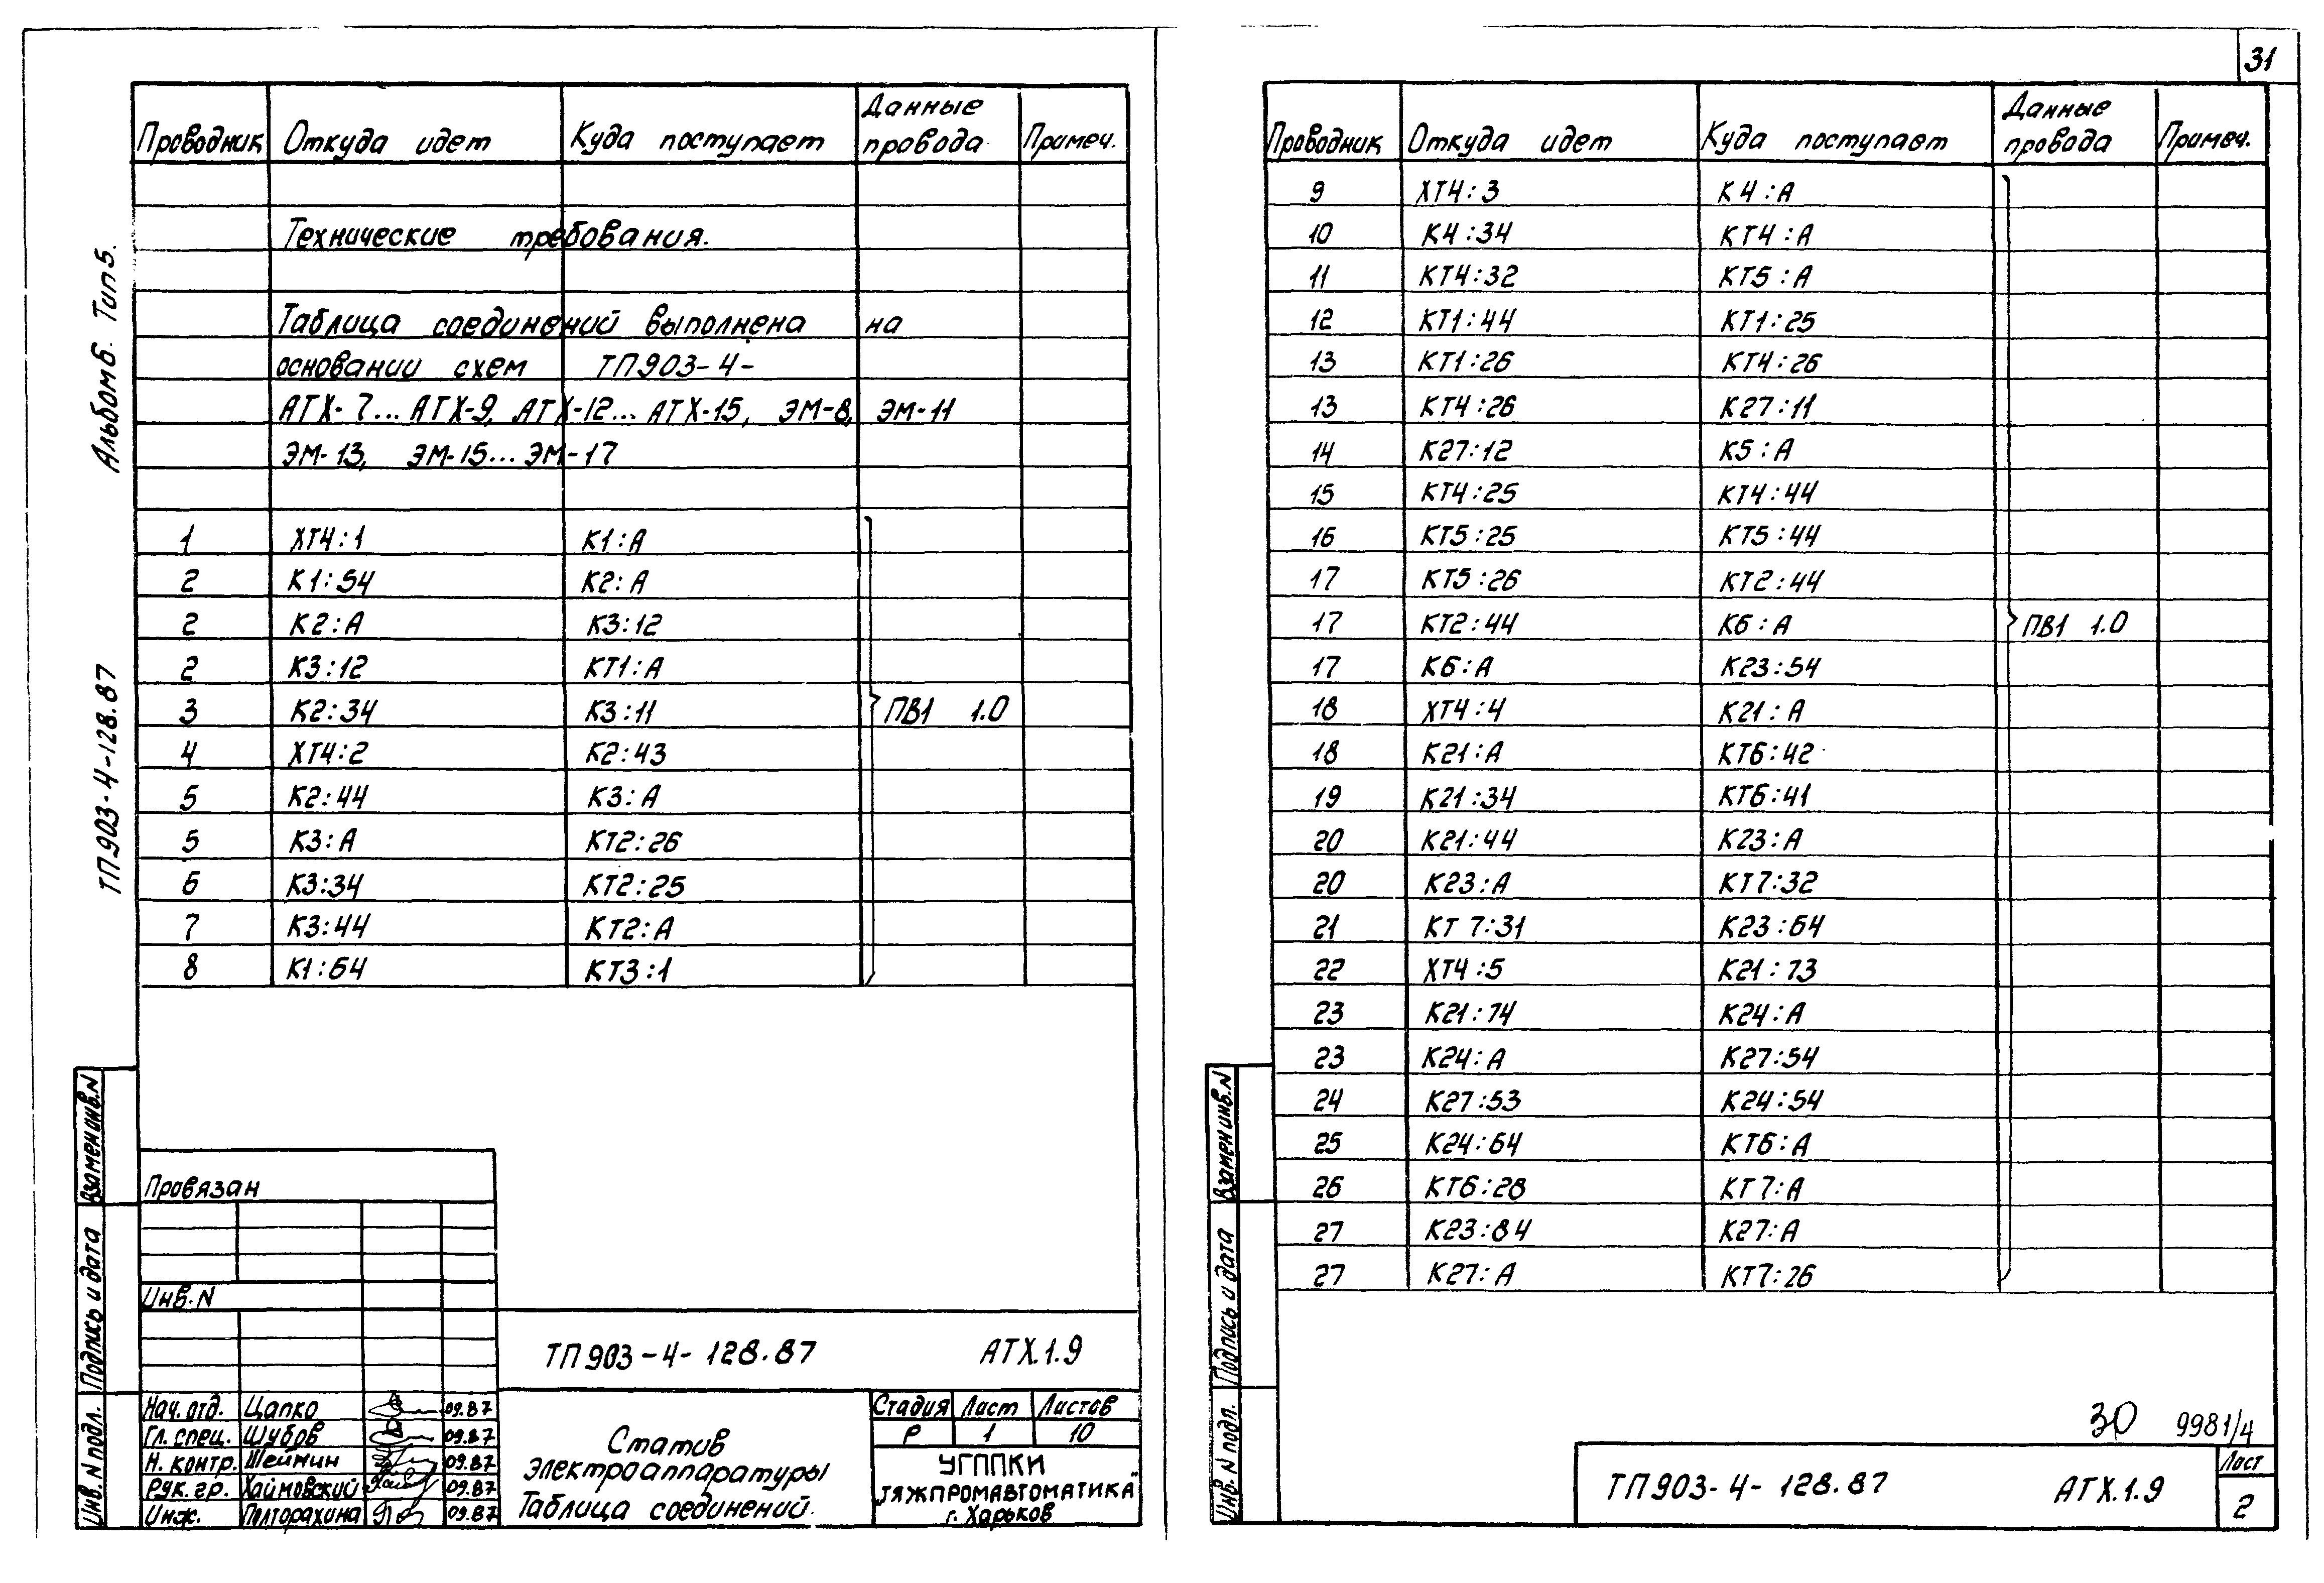 31
Альбом 6. Тип 5.
ТП903-4-128.87
Проводник Откуда идет Куда поступает Данные провода Примеч.
Технические требования.
Таблица соединений выполнена на
основании схем ТП903-4-
АТХ-7...АТХ-9, АТХ-12...АТХ-15, ЭМ-8, ЭМ-11
ЭМ-13, ЭМ-15...ЭМ-17
1 ХТ4:1 К1:А
2 К1:54 К2:А
2 К2:А К3:12
2 К3:12 КТ1:А
3 К2:34 К3:11 ПВ1 1.0
4 ХТ4:2 К2:43
5 К2:44 К3:А
5 К3:А КТ2:26
6 К3:34 КТ2:25
7 К3:44 КТ2:А
8 К1:64 КТ3:1
Взамен инв.N
Подпись и дата
Инв. N подл.
Привязан
Инв.N
ТП903-4-128.87 АТХ.1.9
Нач. отд. Цапко 09.87
Гл. спец. Шубов 09.87
Н. контр. Шейнин 09.87
Рук. гр. Хаймовский 09.87
Инж. Полторахина 09.87
Статив
электроаппаратуры
Таблица соединений.
Стадия Лист Листов
Р 1 10
УГППКИ
"ТЯЖПРОМАВТОМАТИКА"
г. Харьков
Проводник Откуда идет Куда поступает Данные провода Примеч.
9 ХТ4:3 К4:А
10 К4:34 КТ4:А
11 КТ4:32 КТ5:А
12 КТ1:44 КТ1:25
13 КТ1:26 КТ4:26
13 КТ4:26 К27:11
14 К27:12 К5:А
15 КТ4:25 КТ4:44
16 КТ5:25 КТ5:44
17 КТ5:26 КТ2:44
17 КТ2:44 К6:А ПВ1 1.0
17 К6:А К23:54
18 ХТ4:4 К21:А
18 К21:А КТ6:42
19 К21:34 КТ6:41
20 К21:44 К23:А
20 К23:А КТ7:32
21 КТ 7:31 К23:64
22 ХТ4:5 К21:73
23 К21:74 К24:А
23 К24:А К27:54
24 К27:53 К24:54
25 К24:64 КТ6:А
26 КТ6:28 КТ7:А
27 К23:84 К27:А
27 К27:А КТ7:26
Взамен инв.N
Подпись и дата
Инв. N подл.
30 9981/4
ТП903-4-128.87 АТХ.1.9
Лист
2